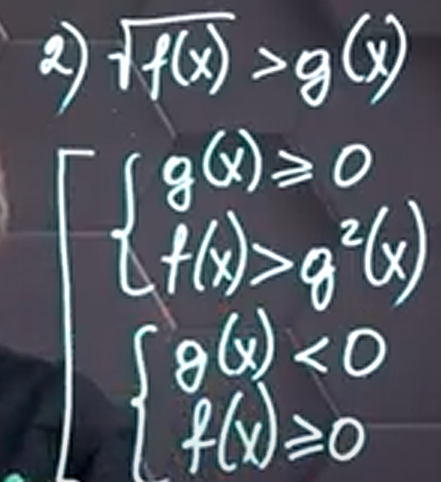 2) √f(x) > g(x)
g(x) ⩾ 0
f(x) > g²(x)
g(x) < 0
f(x) ⩾ 0